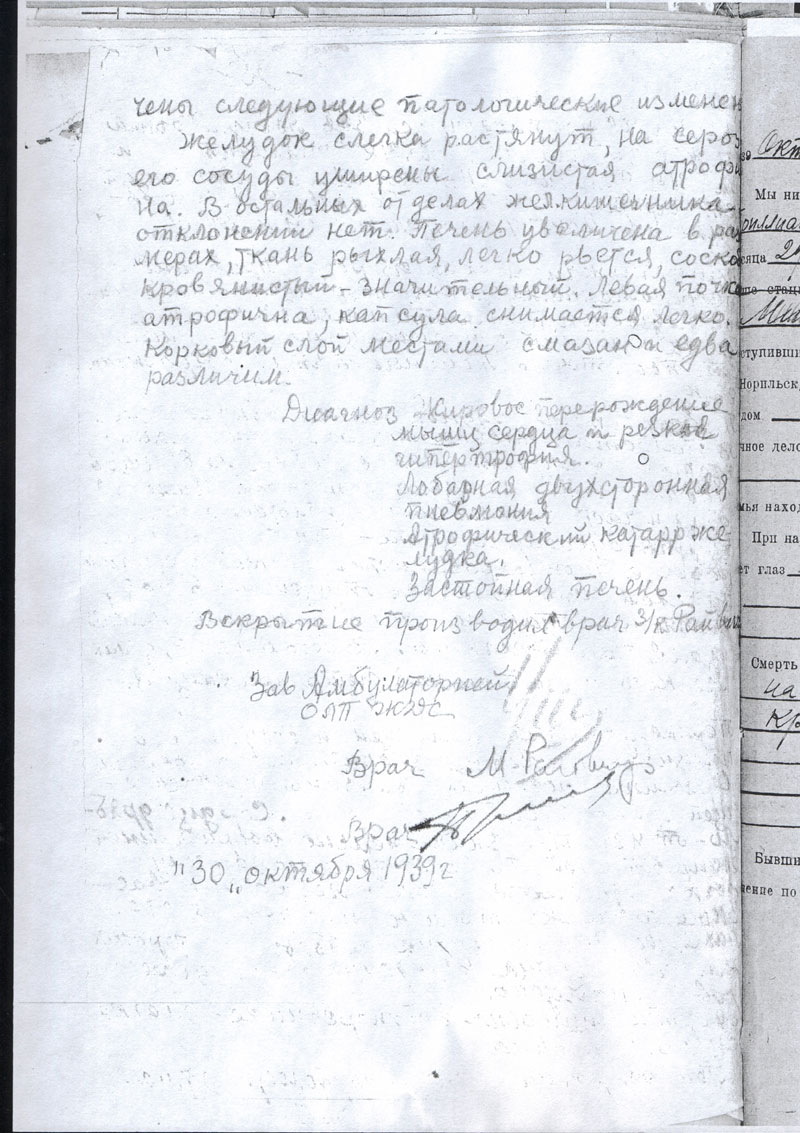 чены следующие патологические изменен
Желудок слегка растянут, на сероз
его сосуды уширены слизистая атрофи
на. В остальных отделах жел.кишечника
отклонений нет. Печень увеличена в раз
мерах, ткань рыхлая, легко рвется, соскоб
кровянистый - значительный. Левая почка
атрофична, капсула снимается легко.
Корковый слой местами смазан и едва
различим.
Диагноз Жировое перерождение
мышц сердца и резкая
гипертрофия.
Лобарная двухсторонная
пневмония
Атрофический катарр же
лудка.
Застойная печень.
Вскрытие производил врач З/к Райвич
Зав Амбулаторией
ОЛП
Врач М. Райвич
Врач
"30" октября 1939 г
Окт
Мы ни
сяца
ступивши
Норильск
дом
чное дело
мья наход
При на
ет глаз
Смерть
на
Бывши
ение по